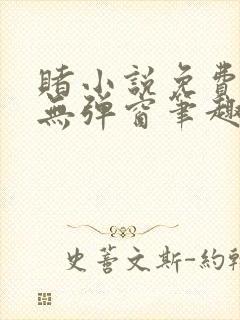 賭小説免費
無彈窗筆趣
史蒼文斯-約翰